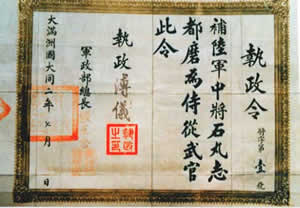 執政令
字第壹號
補陸軍中將石丸志
都磨為侍從武官
此令
執政 溥儀
執政之印
軍政部總長
大滿洲國大同二年七月 日